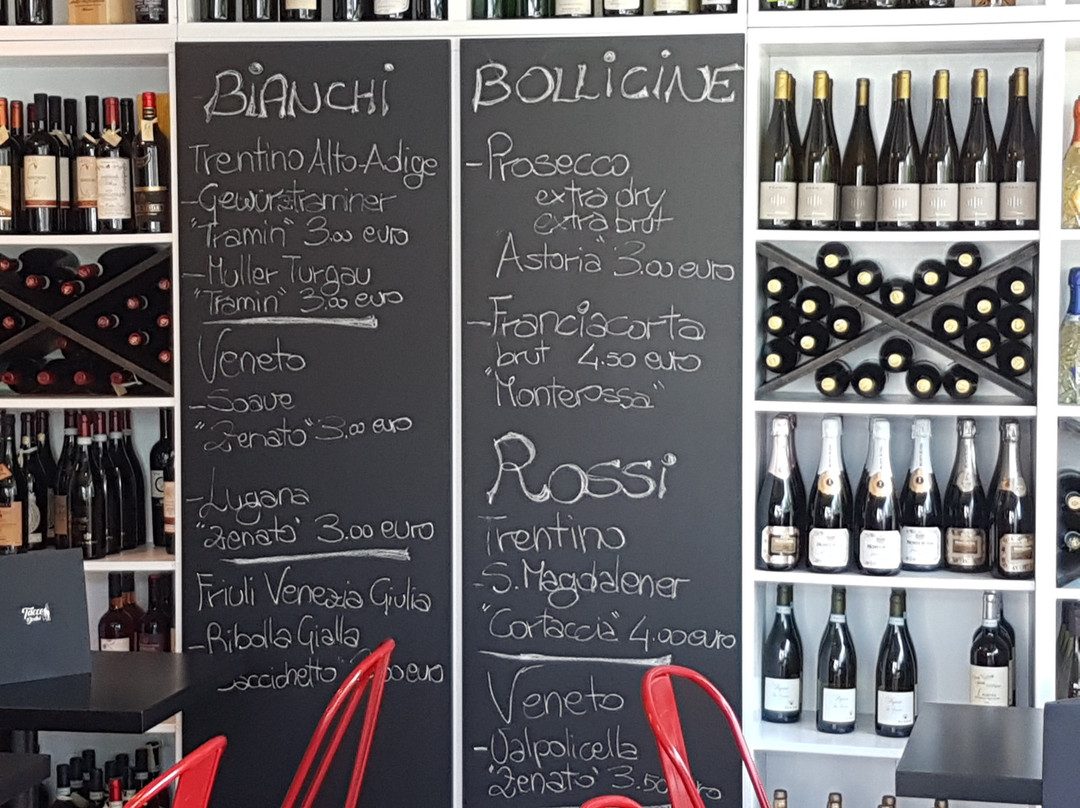 BiANCHi
Trentino Alto-Adige
-Gewürztraminer
"Tramin" 3.00 euro
-Muller Turgau
"Tramin" 3.00 euro
Veneto
-Soave
"Zenato" 3.00 euro
-Lugana
"Zenato" 3.00 euro
Friuli Venezia Giulia
-Ribolla Gialla
euro
BOLLiCiNE
-Prosecco
extra dry
extra brut
Astoria" 3.00 euro
-Franciacorta
brut 4.50 euro
"Monterossa"
Rossi
Trentino
-S.Magdalener
"Cortaccia" 4.00 euro
Veneto
-Valpolicella
"Zenato" 3.50